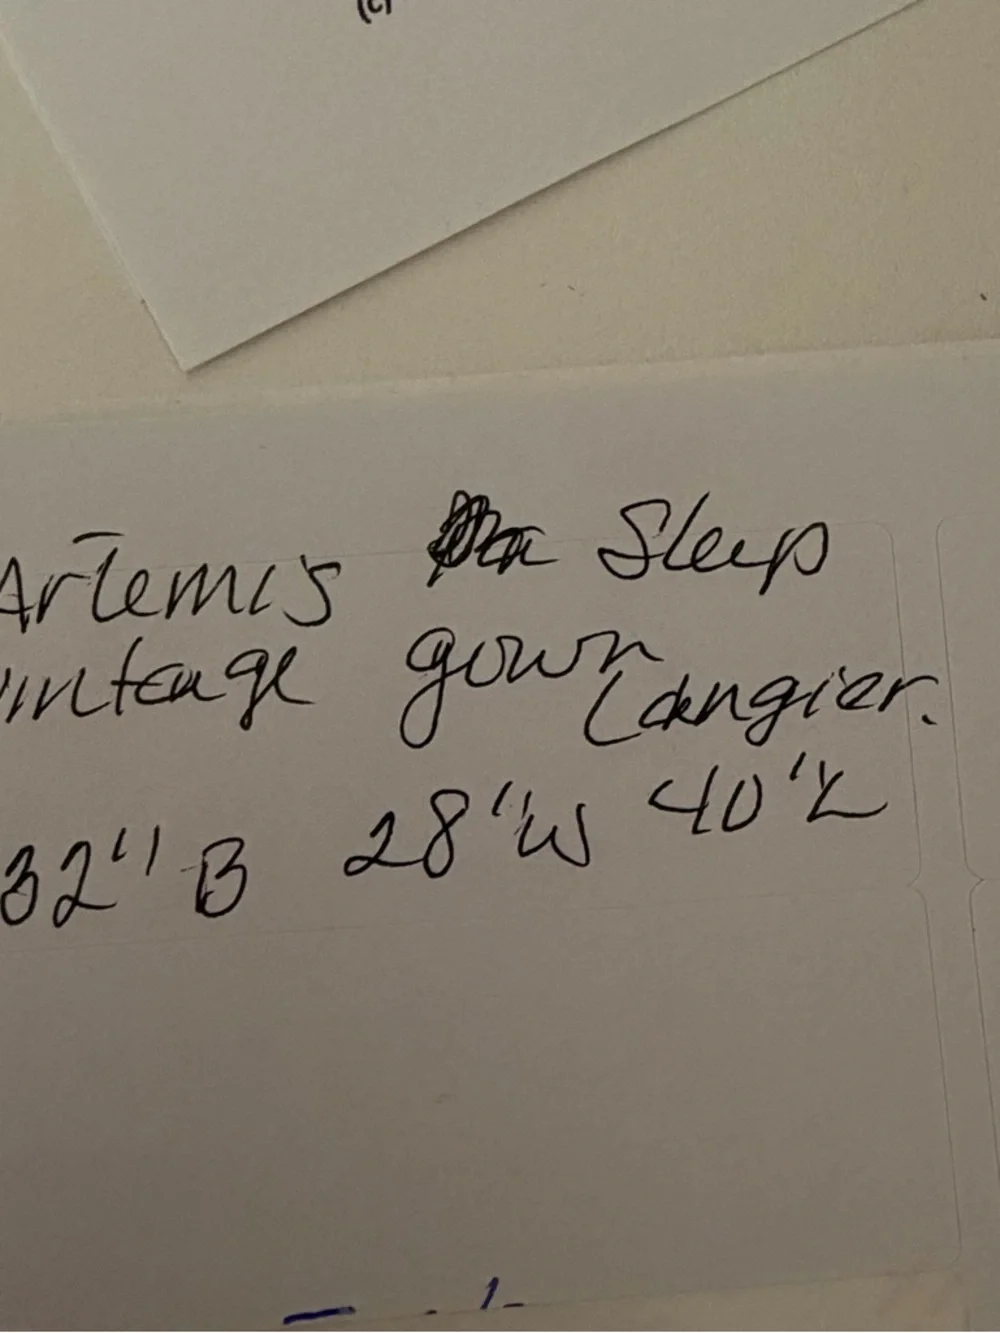 (c)
Artemis Sleep
vintage gown Langier.
32" B 28" W 40" L